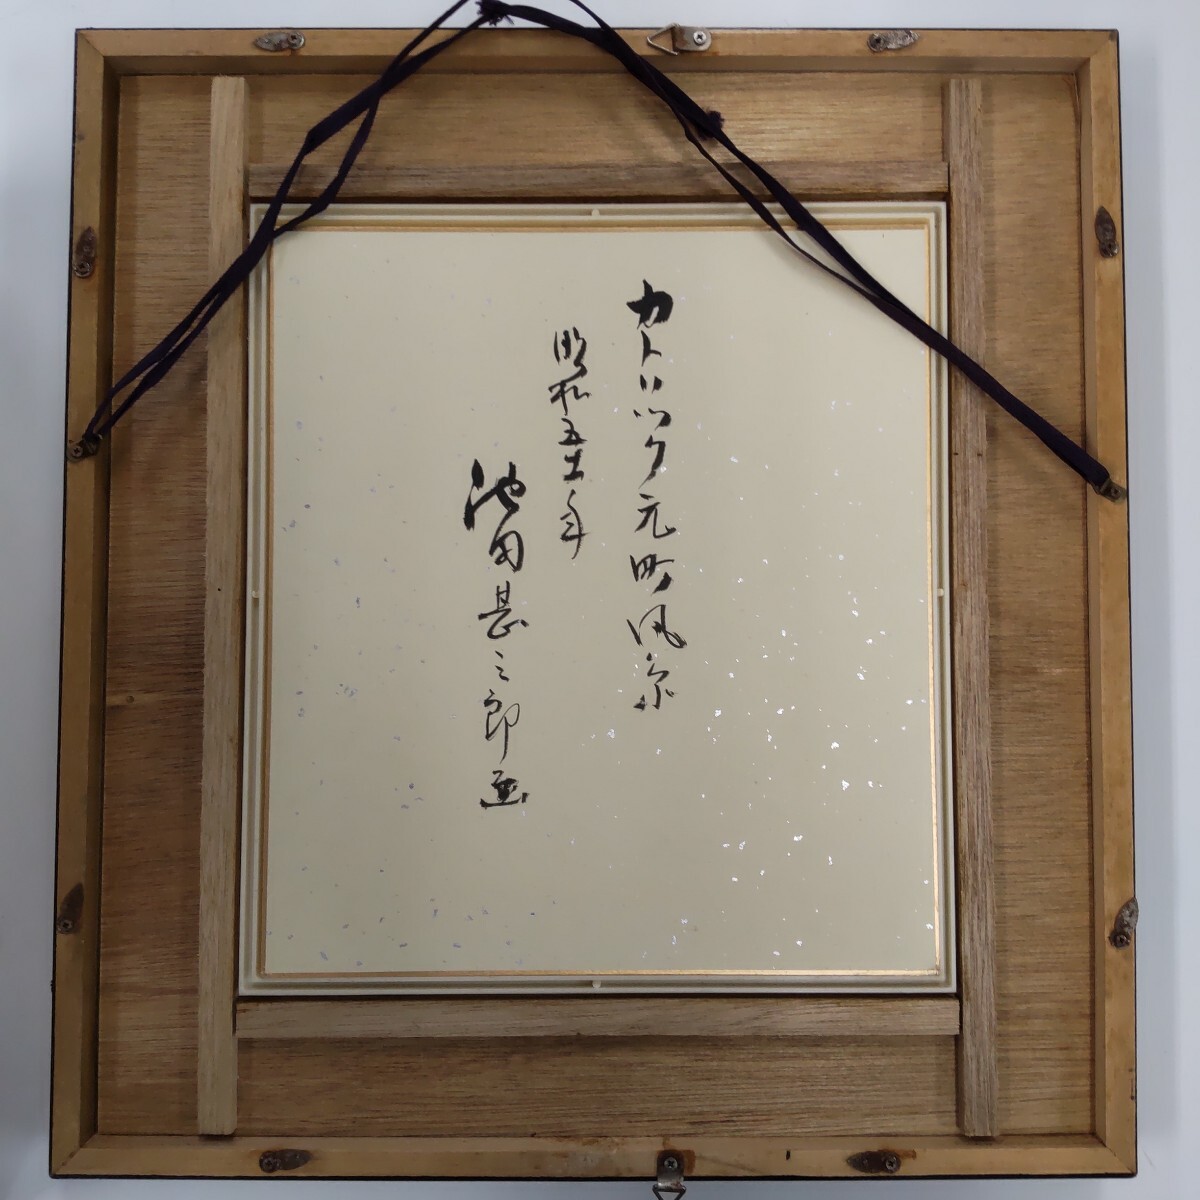 カトリック元町風景
昭和五十一年
池田甚之郎画